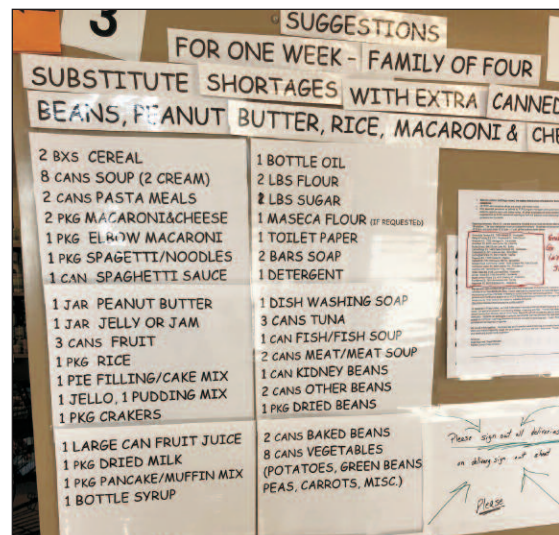 3
SUGGESTIONS
FOR ONE WEEK - FAMILY OF FOUR
SUBSTITUTE SHORTAGES WITH EXTRA CANNED
BEANS, PEANUT BUTTER, RICE, MACARONI & CHE
2 BXS CEREAL
8 CANS SOUP (2 CREAM)
2 CANS PASTA MEALS
2 PKG MACARONI&CHEESE
1 PKG ELBOW MACARONI
1 PKG SPAGETTI/NOODLES
1 CAN SPAGHETTI SAUCE
1 JAR PEANUT BUTTER
1 JAR JELLY OR JAM
3 CANS FRUIT
1 PKG RICE
1 PIE FILLING/CAKE MIX
1 JELLO, 1 PUDDING MIX
1 PKG CRAKERS
1 LARGE CAN FRUIT JUICE
1 PKG DRIED MILK
1 PKG PANCAKE/MUFFIN MIX
1 BOTTLE SYRUP
1 BOTTLE OIL
2 LBS FLOUR
2 LBS SUGAR
1 MASECA FLOUR (IF REQUESTED)
1 TOILET PAPER
2 BARS SOAP
1 DETERGENT
1 DISH WASHING SOAP
3 CANS TUNA
1 CAN FISH/FISH SOUP
2 CANS MEAT/MEAT SOUP
1 CAN KIDNEY BEANS
2 CANS OTHER BEANS
1 PKG DRIED BEANS
2 CANS BAKED BEANS
8 CANS VEGETABLES
(POTATOES, GREEN BEANS
PEAS, CARROTS, MISC.)
Please sign out all deliveries
on delivery sign out sheet
Please